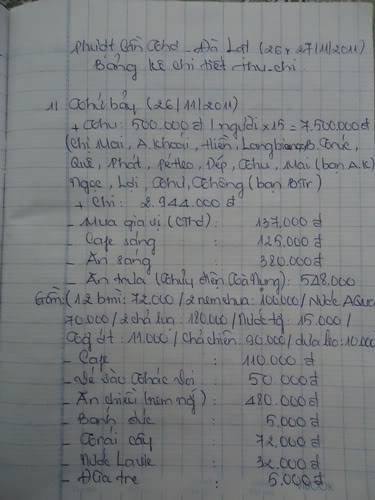 Phượt Cần Thơ - Đà Lạt (26 & 27/11/2011)
Bảng kê chi tiết thu - chi
1) Thứ bảy (26/11/2011)
+ Thu: 500.000đ/người x 15 = 7.500.000đ
(Chị Mai, A. Khoái, Hiền, Langbiang, B. Trúc,
Quê, Phát, Pétreo, Dép, Thu, Mai (bạn A.K)
Ngọc, Lợi, Thư, Thông (bạn BTr)
+ Chi: 2.944.000đ
- Mua gia vị (CThơ) : 137.000đ
- Cafe sáng : 125.000đ
- Ăn sáng : 380.000đ
- Ăn trưa (Thủy điện): 548.000
Gồm: (12 bmì: 72.000 / 2 nem chua: 100.000 / Nước
70.000 / 2 chả lụa: 180.000 / Nước tg: 15.000 /
ớt: 11.000 / Chả chiên: 90.000 / dưa leo: 10.000
- Cafe : 110.000đ
- Vé vào Thác Voi : 50.000đ
- Ăn chiều (nem nớ) : 480.000đ
- Bánh đúc : 5.000đ
- Trái cây : 72.000đ
- Nước Lavie : 32.000đ
- Dĩa tre : 5.000đ